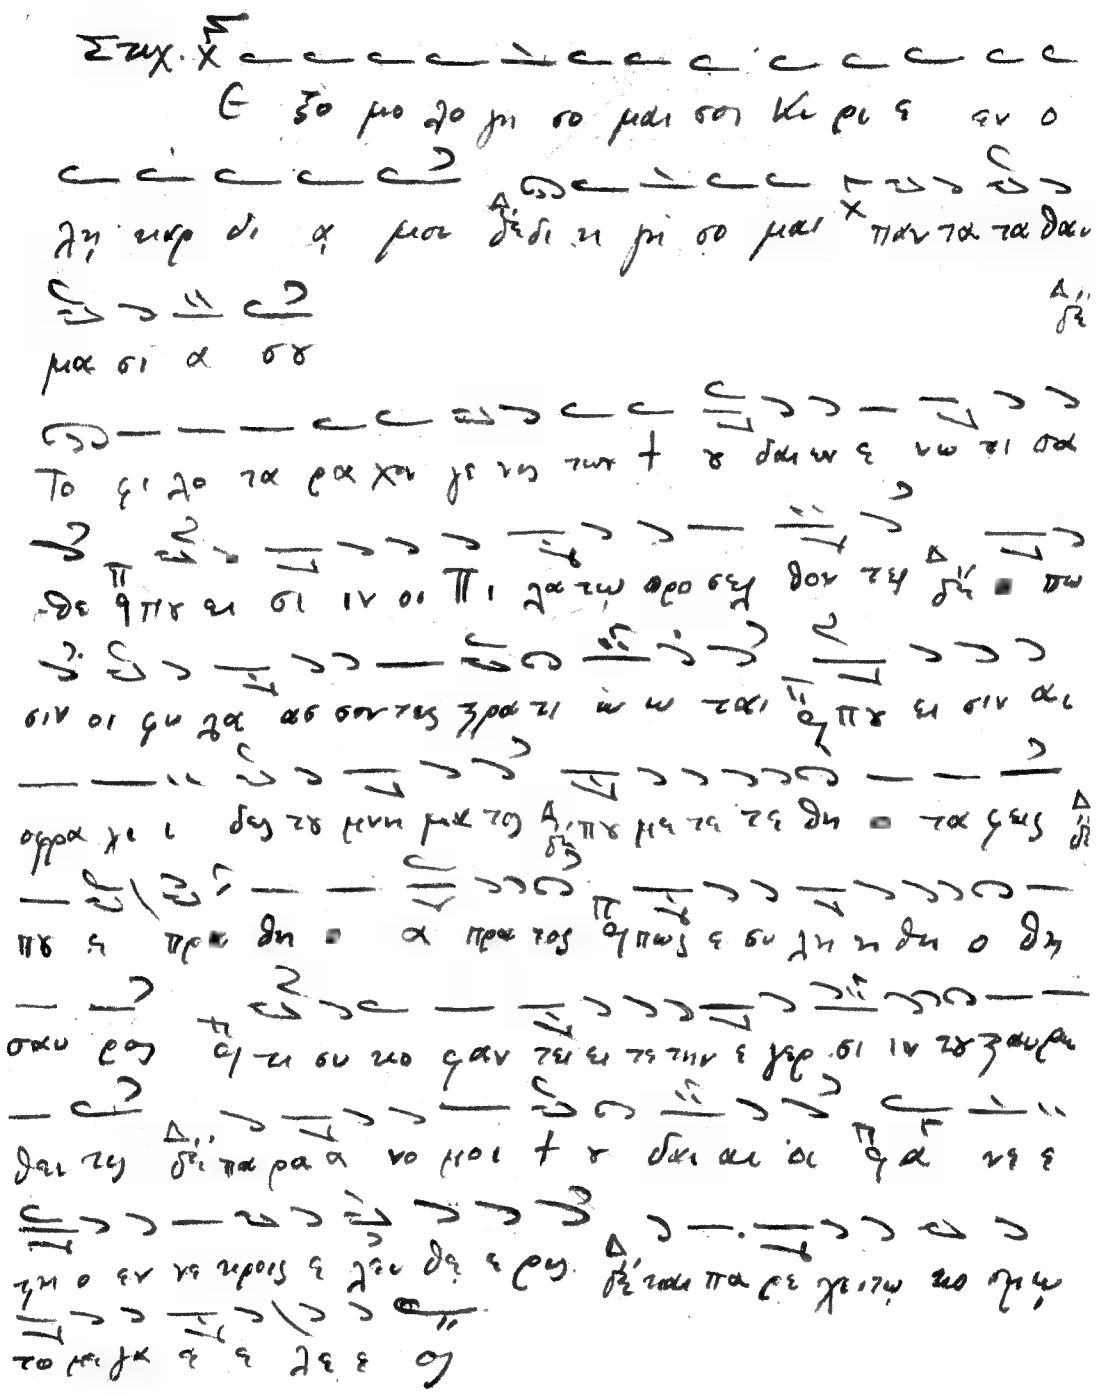 Στιχ.
Ε ξο μο λο γη σο μαι σοι Κυ ρι ε εν ο
λη καρ δι α μου δι η γη σο μαι παν τα τα θαυ
μα σι α σȣ
Το φι λο τα ρα χον γε νος των † ȣ δαι ων ε νω τι σα
θε πȣ ει σι ιν οι Πι λα τω προ σελ θον τες πω
σιν οι φυ λα ασ σον τες στρα τι ω ω ται πȣ ει σιν αι
σφρα γι ι δες τȣ μνη μα τος πȣ με τε τε θη ο τα φεις
πȣ ε πρα θη ο α πρα τος πως ε συ λη η θη ο θη
σαυ ρος τι συ κο φαν τει ει τε την ε γερ σι ιν τȣ σταυρω
θεν τος πα ρα α νο μοι † ȣ δαι αι οι α νε ε
στη ο εν νε κροις ε λευ θε ε ρος και πα ρε χει τω κο σμω
το με γα ε ε λε ε ος